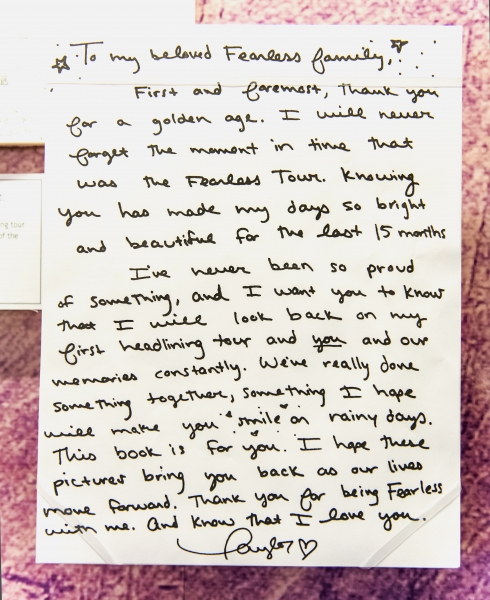 To my beloved Fearless family,
First and foremost, thank you
for a golden age. I will never
forget the moment in time that
was the Fearless Tour. Knowing
you has made my days so bright
and beautiful for the last 15 months
I've never been so proud
of something, and I want you to know
that I will look back on my
first headlining tour and you and our
memories constantly. We've really done
something together, something I hope
will make you smile on rainy days.
This book is for you. I hope these
pictures bring you back as our lives
move forward. Thank you for being Fearless
with me. And know that I love you.
Taylor
ing tour
of the